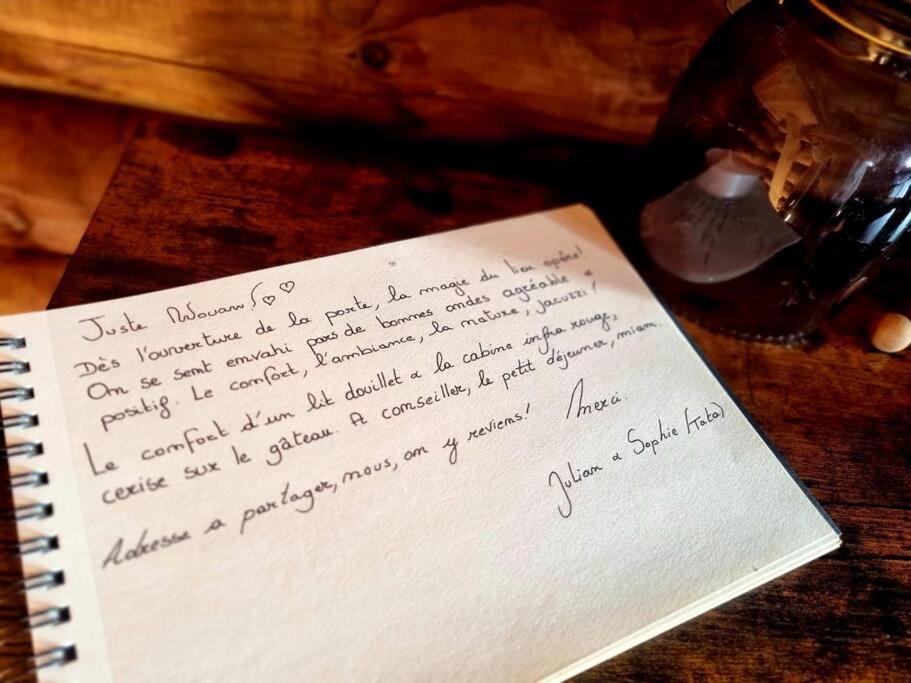 Juste Wouaw! ♡♡
Dès l'ouverture de la porte, la magie du lieu opère!
On se sent envahi pars de bonnes ondes agréable &
positif. Le confort, l'ambiance, la nature, jacuzzi!
Le confort d'un lit douillet & la cabine infra rouge,
cerise sur le gâteau. A conseiller, le petit déjeuner, miam.
Adresse a partager, nous, on y reviens! Merci.
Julian & Sophie (Tata)